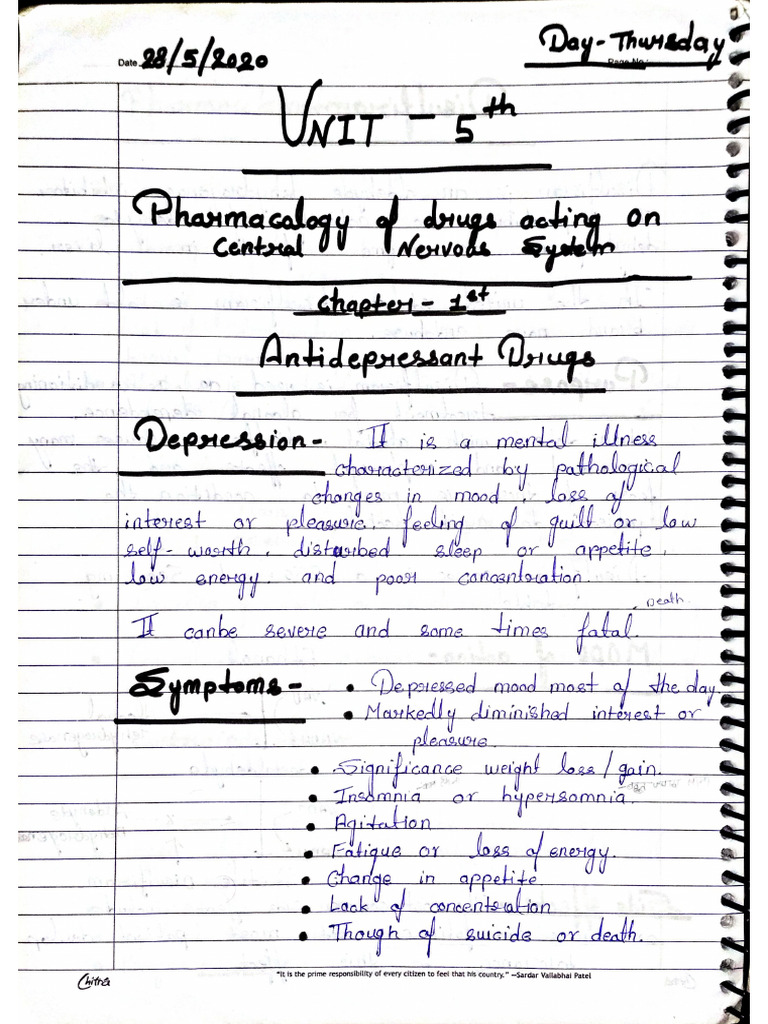 Day-Thursday
Date 28/5/2020
Page No.
UNIT - 5th
Pharmacology of drugs acting on
Central Nervous System
Chapter - 1st
Antidepressant Drugs
Depression- It is a mental illness
characterized by pathological
changes in mood, loss of
interest or pleasure, feeling of guilt or low
self-worth, disturbed sleep or appetite,
low energy and poor concentration.
Death
It canbe severe and some times fatal.
Symptoms- • Depressed mood most of the day.
• Markedly diminished interest or
pleasure.
• Significance weight loss/gain.
• Insomnia or hypersomnia.
• Agitation
• Fatigue or loss of energy.
• Change in appetite
• Lack of concentration
• Though of suicide or death.
Chitra
"It is the prime responsibility of every citizen to feel that his country." —Sardar Vallabhai Patel